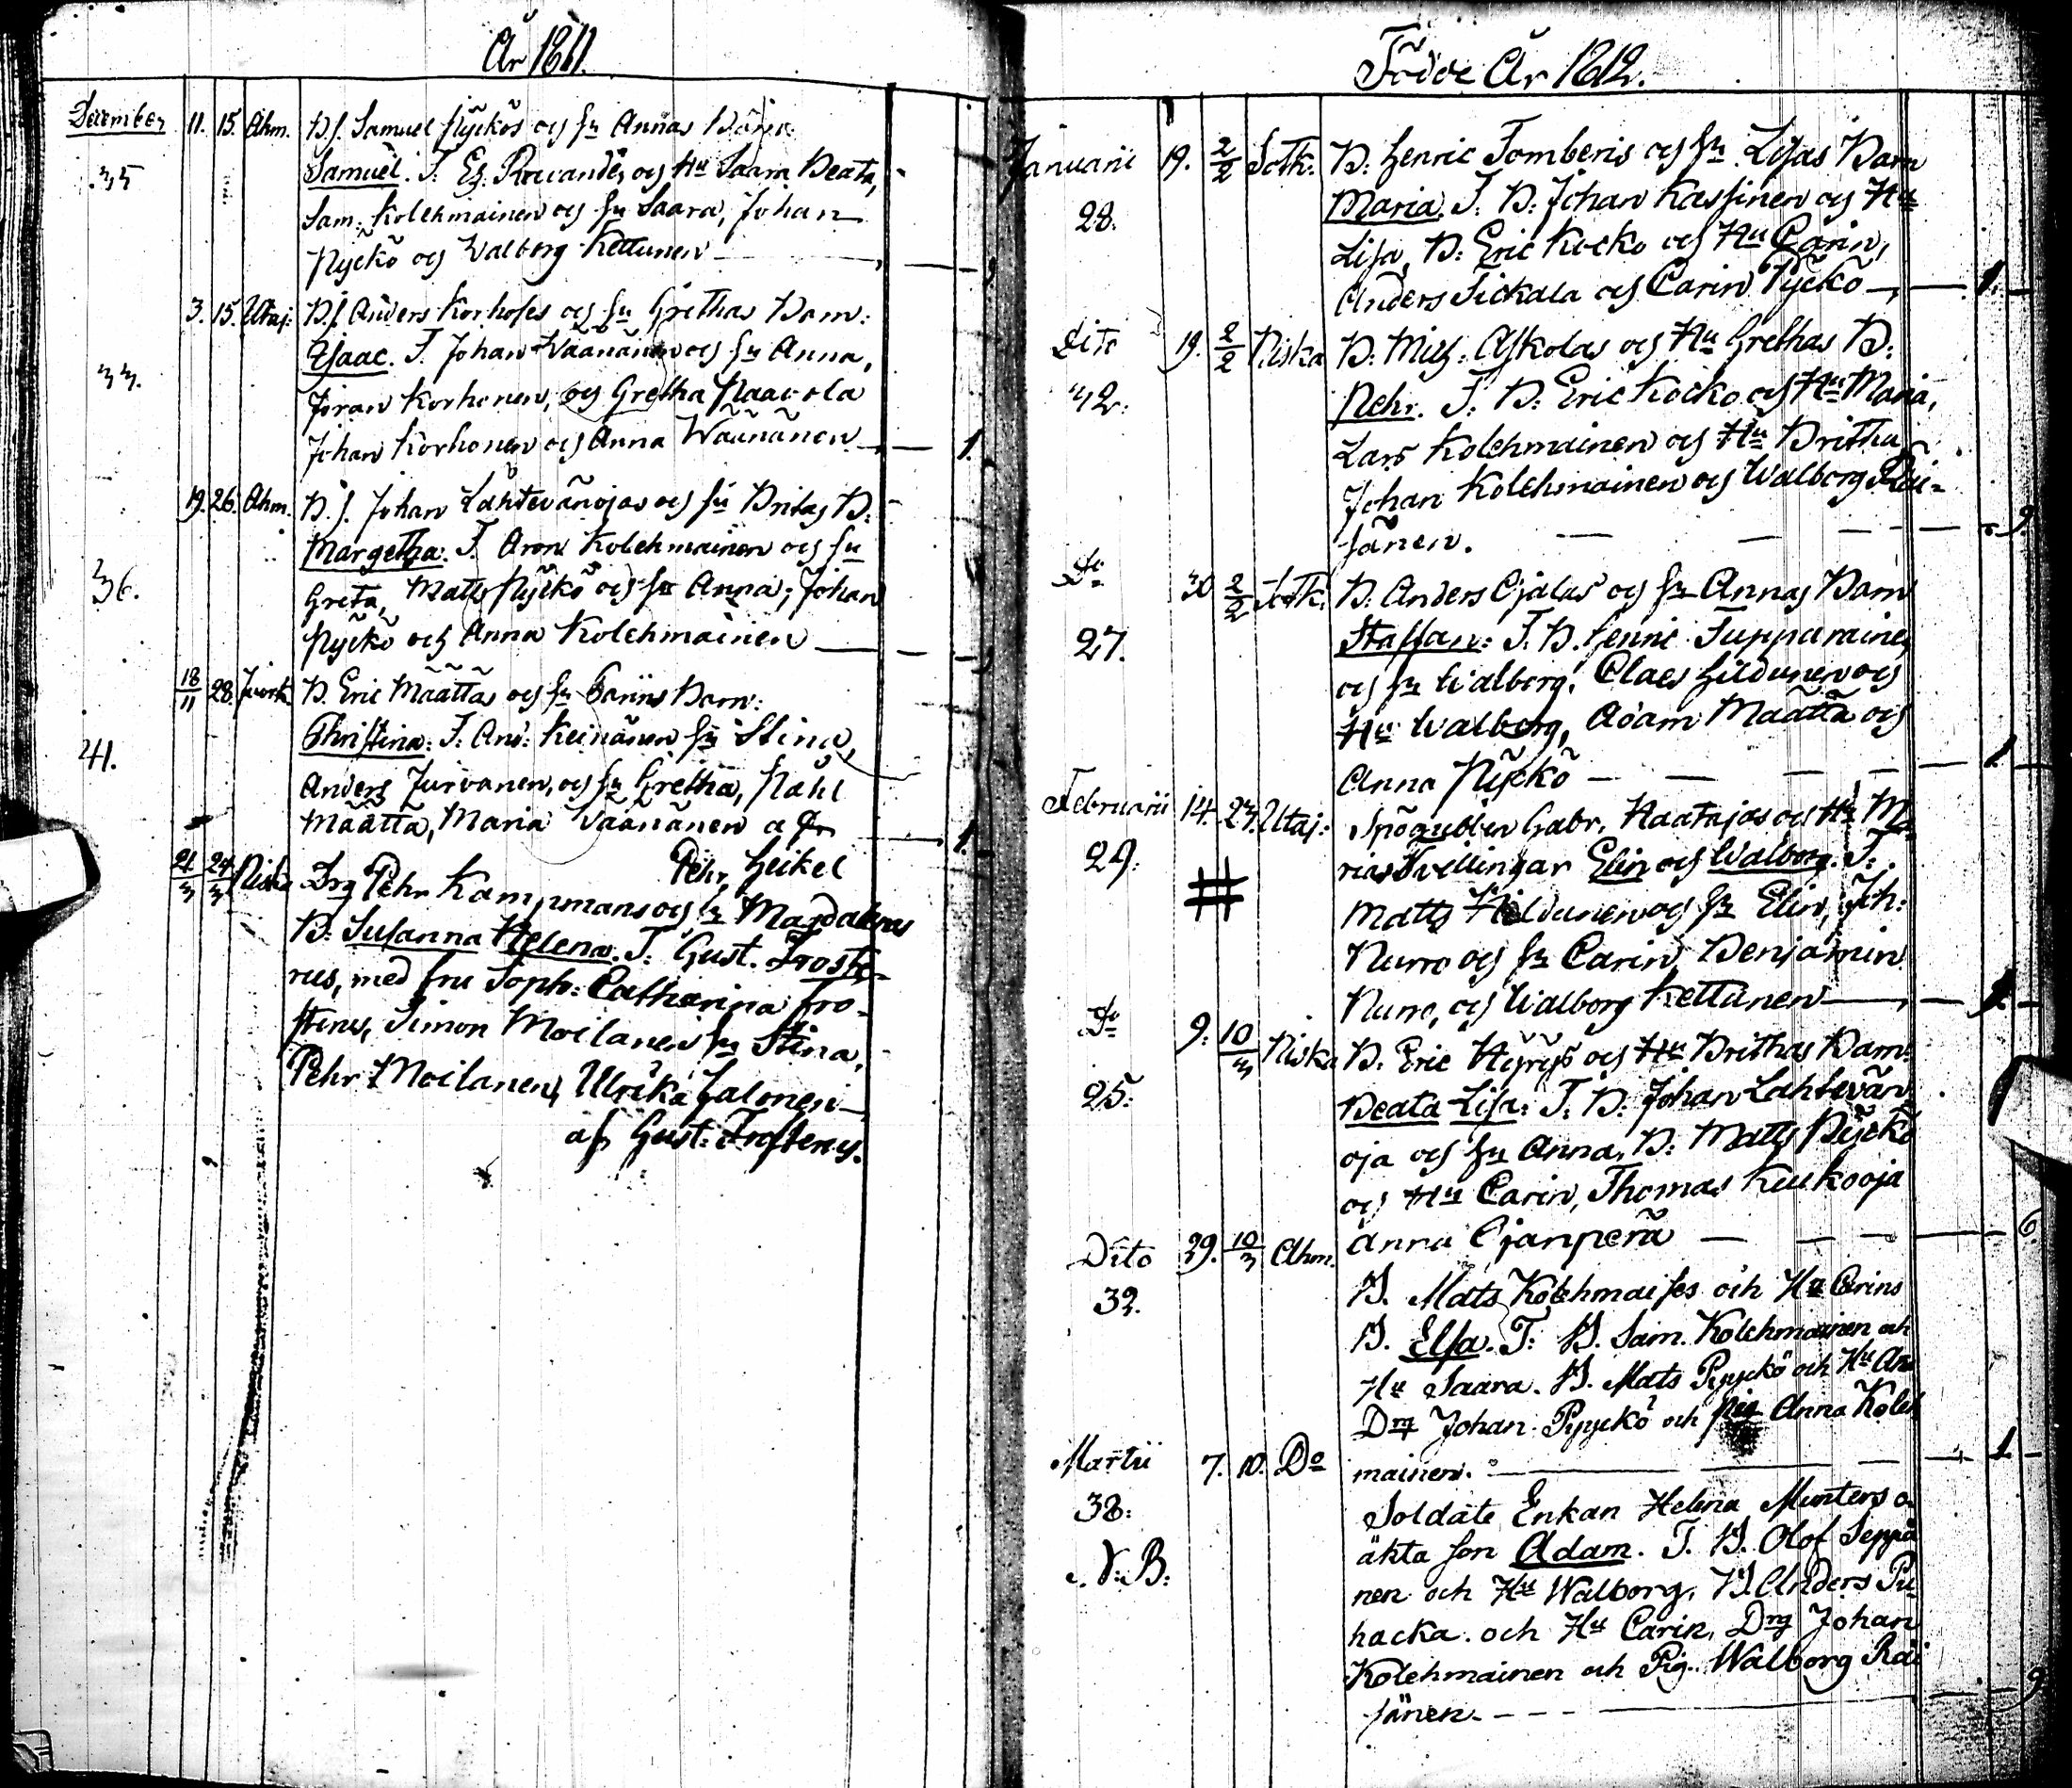 År 1811.
December 11. 15. Ahm. B. s. Samuel Pyckös och hu Annas Barn
35 Samuel. T. Es. Rovander och Hu Saara Beata,
Sam. Kolehmainen och hu Saara, Johan
Pyckö och Walborg Kettunen
3. 15. Utaj: B. s. Anders Korhoses och hu Grethas Barn:
Isaac. T. Johan Wäänänen och hu Anna,
33. Jöran Korhonen, och Gretha Paavola
Johan Korhonen och Anna Wäänänen 1.
19. 26. Ahm. B. s. Johan Lähtevänojas och hu Britas B:
Margetha. T. Aron Kolehmainen och hu
36. Greta, Matts Pyckö och hu Anna, Johan
Pyckö och Anna Kolehmainen
18/11 28. B. Eric Määttäs och hu Carins Barn:
Christina: T: And: Keinänen hu Stina,
41. Anders Jurvanen, och hu Gretha, Påhl
Määttä, Maria Väänänen 1.
Pehr Heikel
21/3 24/3 Niska Drg Pehr Kampmans och hu Magdalenas
B. Susanna Helena. T: Gust. Froste-
rus, med fru Soph: Catharina Fro-
sterus, Simon Moilanen hu Stina,
Pehr Moilanen, Ulrika Jalonen
af Gust: Frosterus.
Födde År 1812.
Januarii 19. 2/2 Sotk. B. Henric Tomberis och hu Lisas Barn
28. Maria. T. B. Johan Kassinen och Hu
Lisa, B: Eric Kocko och Hu Carin,
Anders Tickala och Carin Pyckö 1.
Dito 19. 2/2 Niska B. Mich: Askolas och Hu Grethas B:
42. Pehr. T: B. Eric Kocko och Hu Maria,
Lars Kolehmainen och Hu Britha
Johan Kolehmainen och Walborg Räi-
sänen. 9.
Do 30 2/2 Sotk. B. Anders Ojalas och hu Annas Barn
27. Staffan: T. B. Henric Tuppurainen
och hu Walborg, Claes Hildunen och
Hu Walborg, Adam Määttä och
Anna Pyckö 1.
Februarii 14. 23. Utaj: Spögubben Gabr. Haatajas och Hu Ma-
29. rias Tvillingar Elin och Walborg. T:
# Matts Hildunen och hu Elin, Joh:
Nurro och hu Carin, Benjamin
Nurro, och Walborg Kettunen
Do 9. 10/3 Niska B. Eric Hyrys och Hu Brithas Barn:
25. Beata Lisa: T: B: Johan Lahtevän
oja och hu Anna, B: Matts Pyckö
och Hu Carin, Thomas Kuckooja
Anna Ojanperä 6.
Dito 29. 10/3 Ahm.
32. B. Mats Kolehmaises och Hu Carins
B. Elsa. T: B. Sam. Kolehmainen och
Hu Saara. B. Mats Pyyckö och Hu An
Drg Johan Pyyckö och Pig Anna Koleh
mainen. 1
Martii 7. 10. Do
38. Soldate Enkan Helena Munters o
N: B: äkta son Adam. T. B. Olof Seppä
nen och Hu Walborg, B. Anders Pu
hacka och Hu Carin, Drg Johan
Kolehmainen och Pig. Walborg Räi
sänen. 9